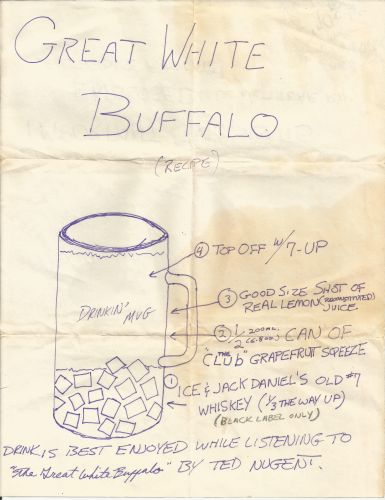 GREAT WHITE
BUFFALO
(RECIPE)
④ TOP OFF W/ 7-UP
③ GOOD SIZE SHOT OF
REAL LEMON (RECONSTITUTED)
JUICE
DRINKIN' MUG
② 1/2 200ML. (6.8OZ) CAN OF
"THE CLUB" GRAPEFRUIT SQUEEZE
① ICE & JACK DANIEL'S OLD #7
WHISKEY (1/3 THE WAY UP)
(BLACK LABEL ONLY)
DRINK IS BEST ENJOYED WHILE LISTENING TO
"The Great White Buffalo" BY TED NUGENT.